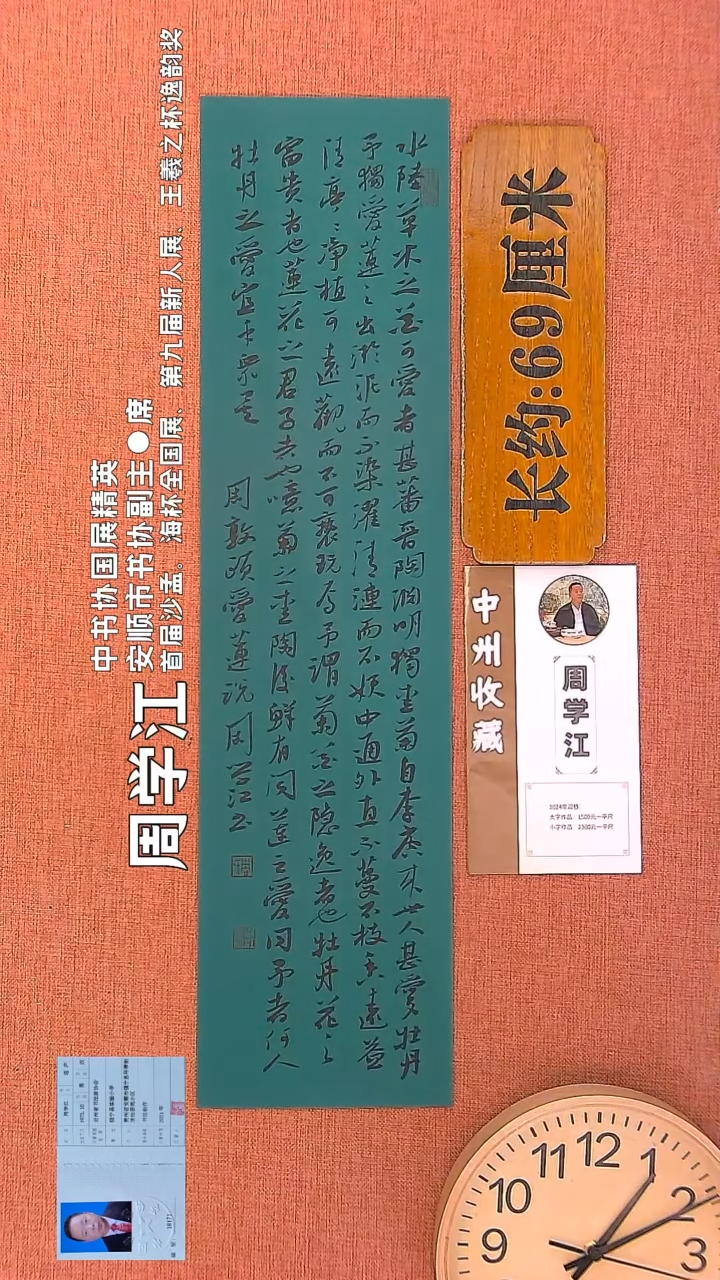 中书协国展精英
安顺市书协副主●席
首届沙孟。海杯全国展、第九届新人展、王羲之杯逸韵奖
周学江
水陸草木之花可愛者甚蕃晉陶淵明獨愛菊自李唐来世人甚愛牡丹
予獨愛蓮之出淤泥而不染濯清漣而不妖中通外直不蔓不枝香遠益
清亭〻淨植可遠觀而不可褻玩焉予謂菊花之隐逸者也牡丹花之
富貴者也蓮花之君子者也噫菊之愛陶後鮮有闻蓮之愛同予者何人
牡丹之愛宜乎衆矣
周敦頤愛蓮説周学江书
长约:69厘米
周学江
大字作品 1500元一平尺
小字作品 2300元一平尺
9
10
11
12
1
2
3